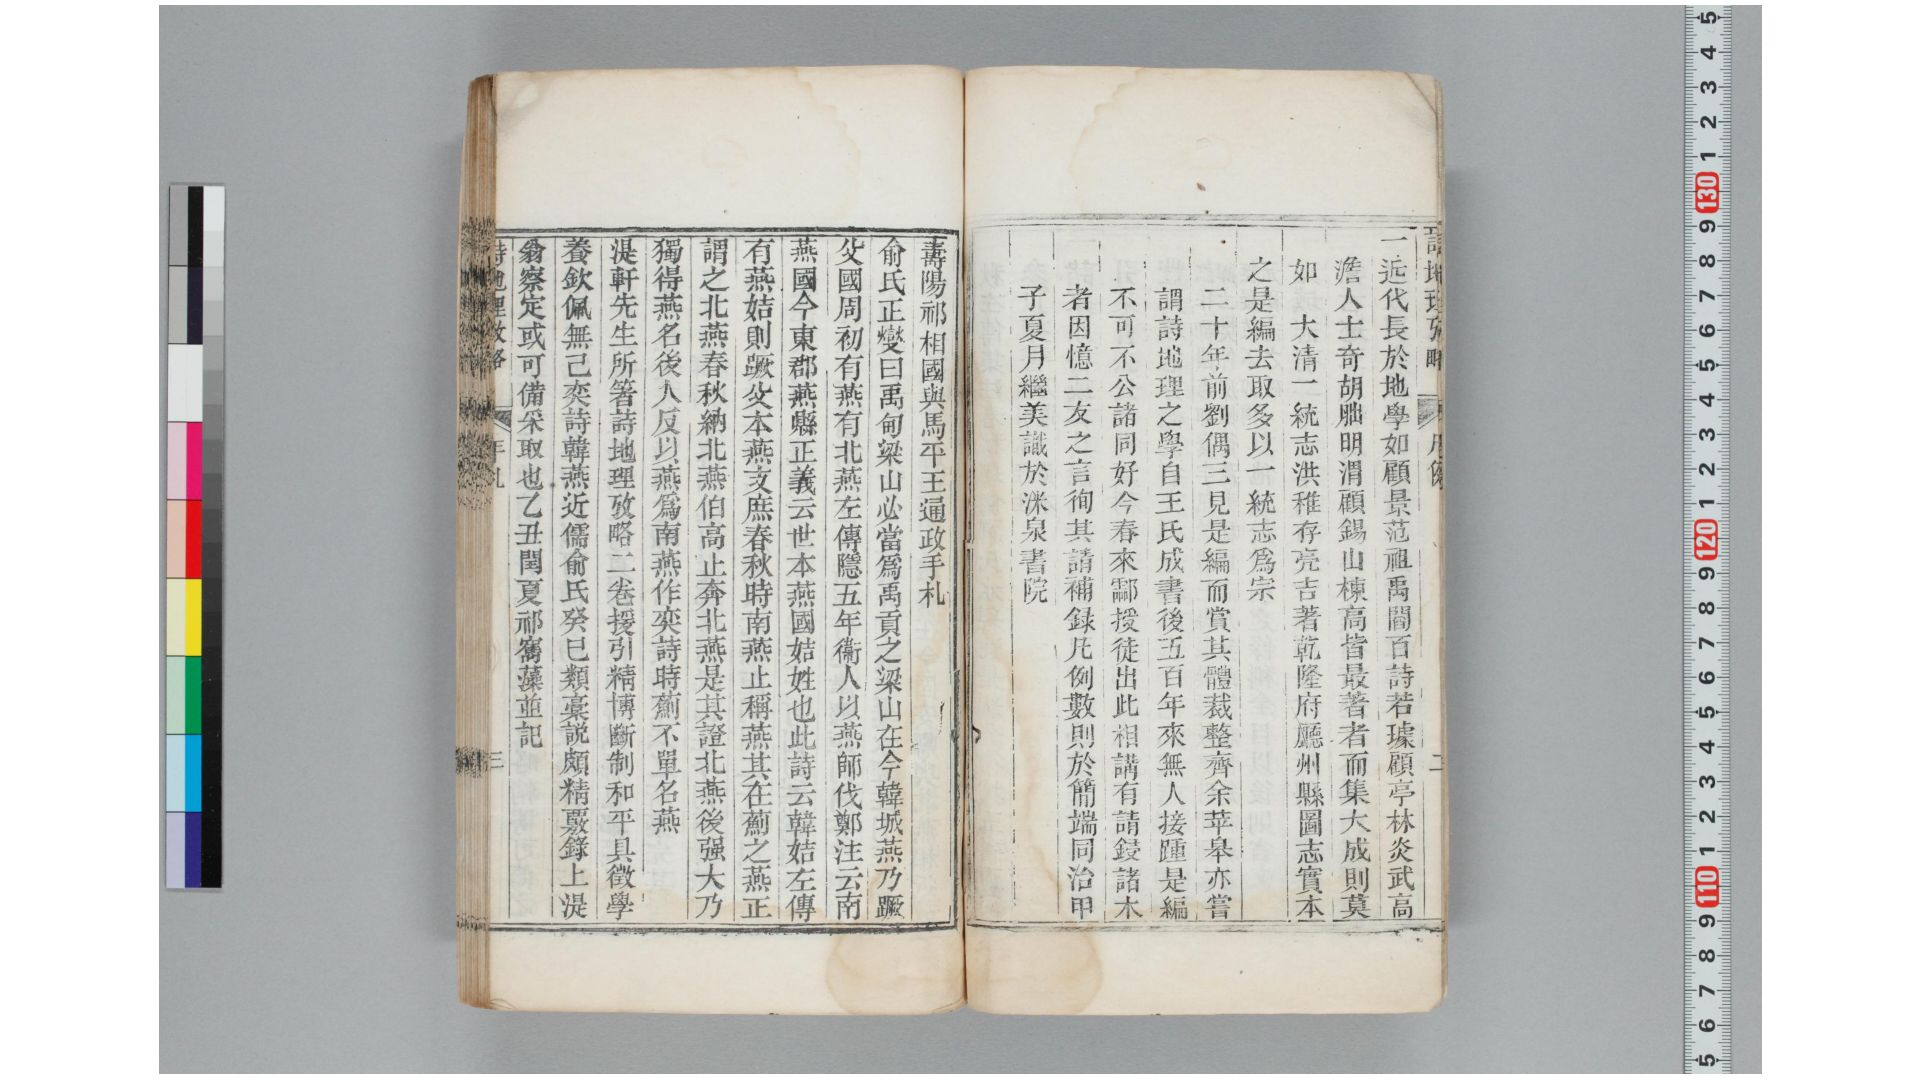 詩地理攷略 凡例 二
一近代長於地學如顧景范祖禹閻百詩若璩顧亭林炎武高
澹人士奇胡朏明渭顧錫山棟高皆最著者而集大成則莫
如 大清一統志洪稚存亮吉著乾隆府廳州縣圖志實本
之是編去取多以一統志爲宗
二十年前劉偶三見是編而賞其體裁整齊余苹皋亦嘗
謂詩地理之學自王氏成書後五百年來無人接踵是編
不可不公諸同好今春來酃授徒出此相講有請鋟諸木
者因憶二友之言徇其請補録凡例數則於簡端同治甲
子夏月繼美識於洣泉書院
壽陽祁相國與馬平王通政手札
俞氏正燮曰禹甸梁山必當爲禹貢之梁山在今韓城燕乃蹶
父國周初有燕有北燕左傳隱五年衞人以燕師伐鄭注云南
燕國今東郡燕縣正義云世本燕國姞姓也此詩云韓姞左傳
有燕姞則蹶父本燕支庶春秋時南燕止稱燕其在薊之燕正
謂之北燕春秋納北燕伯高止奔北燕是其證北燕後强大乃
獨得燕名後人反以燕爲南燕作奕詩時薊不單名燕
湜軒先生所箸詩地理攷略二卷援引精博斷制和平具徵學
養欽佩無已奕詩韓燕近儒俞氏癸巳類稾説頗精覈錄上湜
翁察定或可備采取也乙丑閏夏祁寯藻並記
詩地理攷略 手札 三
5
4
3
2
1
130
9
8
7
6
5
4
3
2
1
120
9
8
7
6
5
4
3
2
1
110
9
8
7
6
5